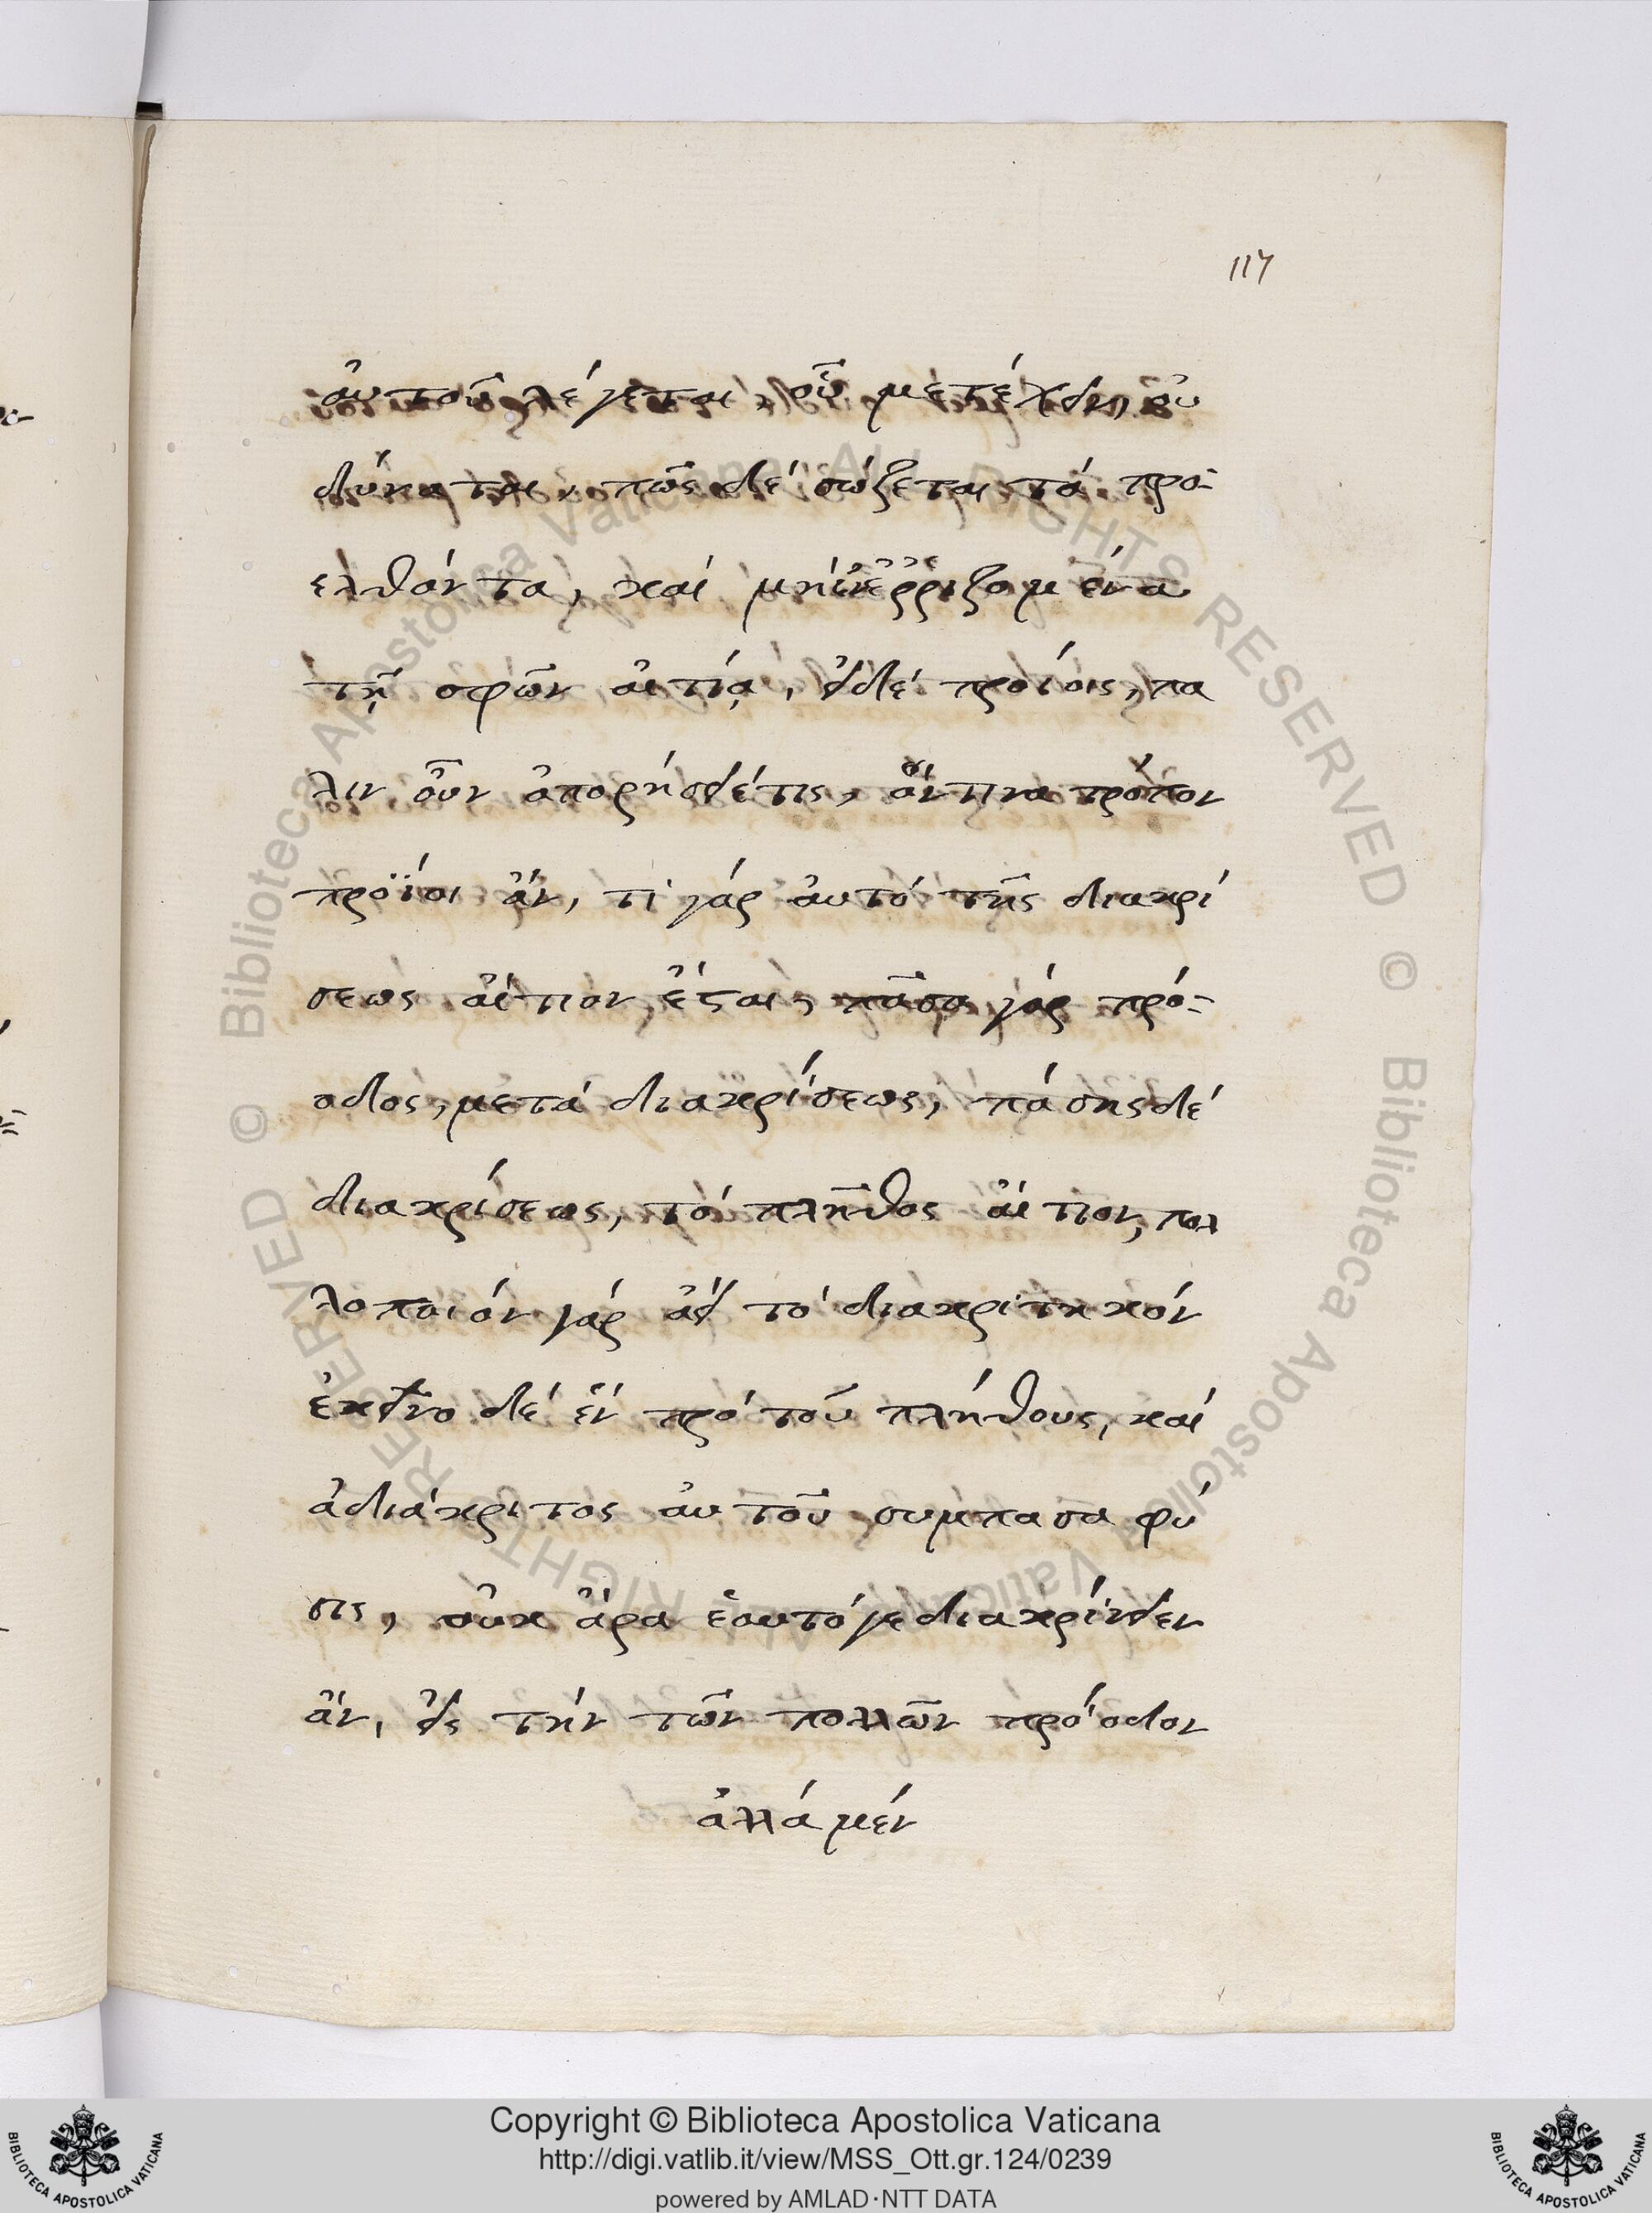 117
αὐτοῦ λέγεται, οὗ μετέχειν οὐ
δύναται, πῶς δέ σώζεται τά προ-
ελθόντα, καί μή ἐνερριζομένα
τῇ σφῶν αἰτίᾳ, εἰ δέ προίοις, πα
λιν οὖν ἀπορήσειέ τις, ὅντινα τρόπον
προΐοι ἄν, τί γάρ αὐτό τῆς διακρί
σεως αἴτιον ἔσται, πᾶσα γάρ πρό-
οδος, μετά διακρίσεως, πάσης δέ
διακρίσεως, τό πλῆθος αἴτιον, πολ
λοποιόν γάρ ἀεί τό διακριτικόν
ἐκεῖνο δέ ἕν πρό τοῦ πλήθους, καί
ἀδιάκριτος αὐτοῦ συμπασα φύ
σις, οὐκ ἄρα ἑαυτό γε διακρίνειεν
ἄν, εἰς τήν τῶν πολλῶν πρόοδον
ἀλλά μέν
Copyright © Biblioteca Apostolica Vaticana
http://digi.vatlib.it/view/MSS_Ott.gr.124/0239
powered by AMLAD·NTT DATA
BIBLIOTECA APOSTOLICA VATICANA
BIBLIOTECA APOSTOLICA VATICANA
© Biblioteca Apostolica Vaticana ALL RIGHTS RESERVED
© Biblioteca Apostolica Vaticana ALL RIGHTS RESERVED